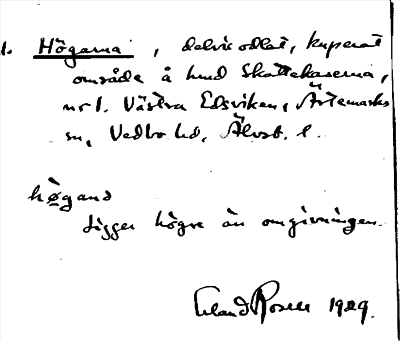 1. Högarna, delvis odlat, kuperat
område å hmd Skattekaserna,
nr 1. Västra Edsviken, Ärtemarks
sn, Vedbo hd, Älvsb. l.
hø̀gana
Ligger högre än omgivningen.
Erland Rosell 1929.